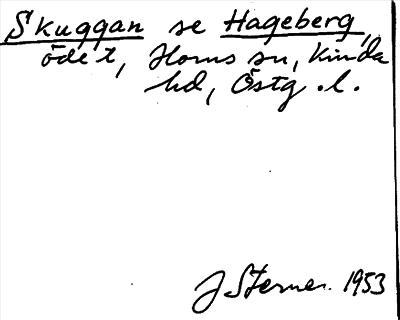 Skuggan se Hageberg,
ödet, Horns sn, Kinda
hd, Östg.l.
J Sterner. 1953